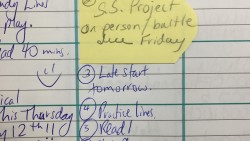 dy Lines
May.
ad 40 mins.
ical
this Thursday
y 12th!!
S.S. Project
on person/battle
due Friday
③ Late start
tomorrow.
④ Practice lines.
⑤ Read!